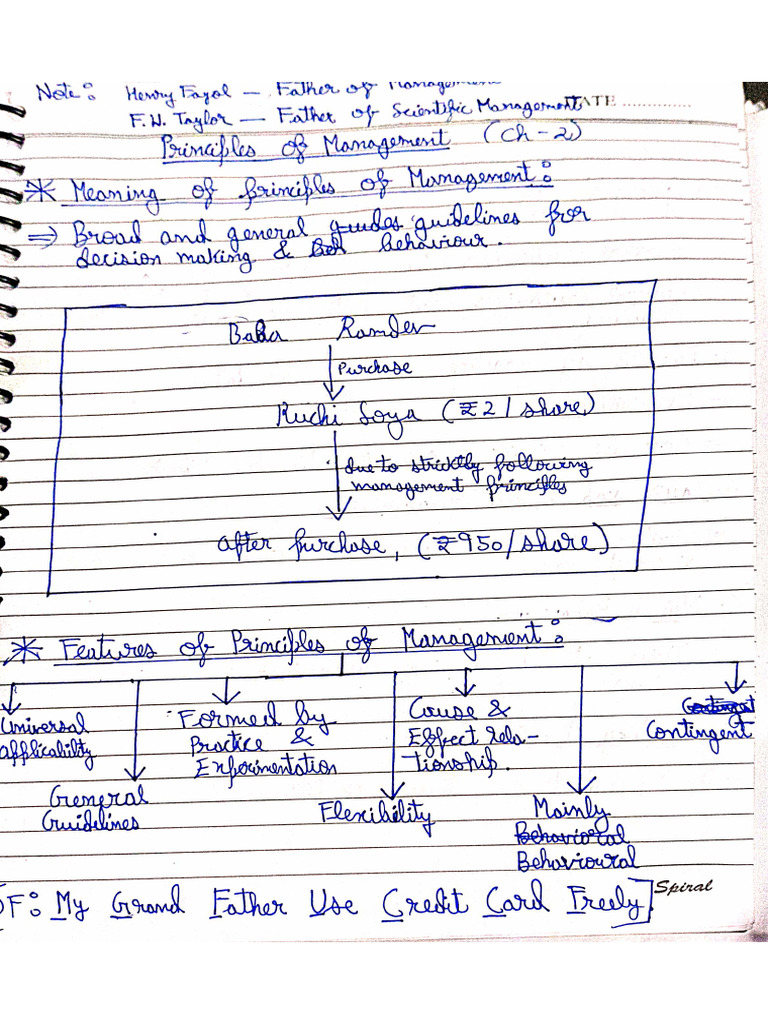 Note: Henry Fayol — Father of Management
DATE ..............
F.W. Taylor — Father of Scientific Management
Principles of Management (Ch - 2)
* Meaning of principles of Management:
⇒ Broad and general guides guidelines for
decision making & behaviour.
Baba Ramdev
Purchase
Ruchi Soya (₹2 / share)
due to strictly following
management principles
after purchase, (₹950/share)
* Features of Principles of Management:
Universal
applicability
General
Guidelines
Formed by
Practice &
Experimentation
Flexibility
Cause &
Effect rela-
tionship.
Mainly
Behavioral
Behavioural
Contingent
Contingent
F: My Grand Father Use Credit Card Freely]
Spiral